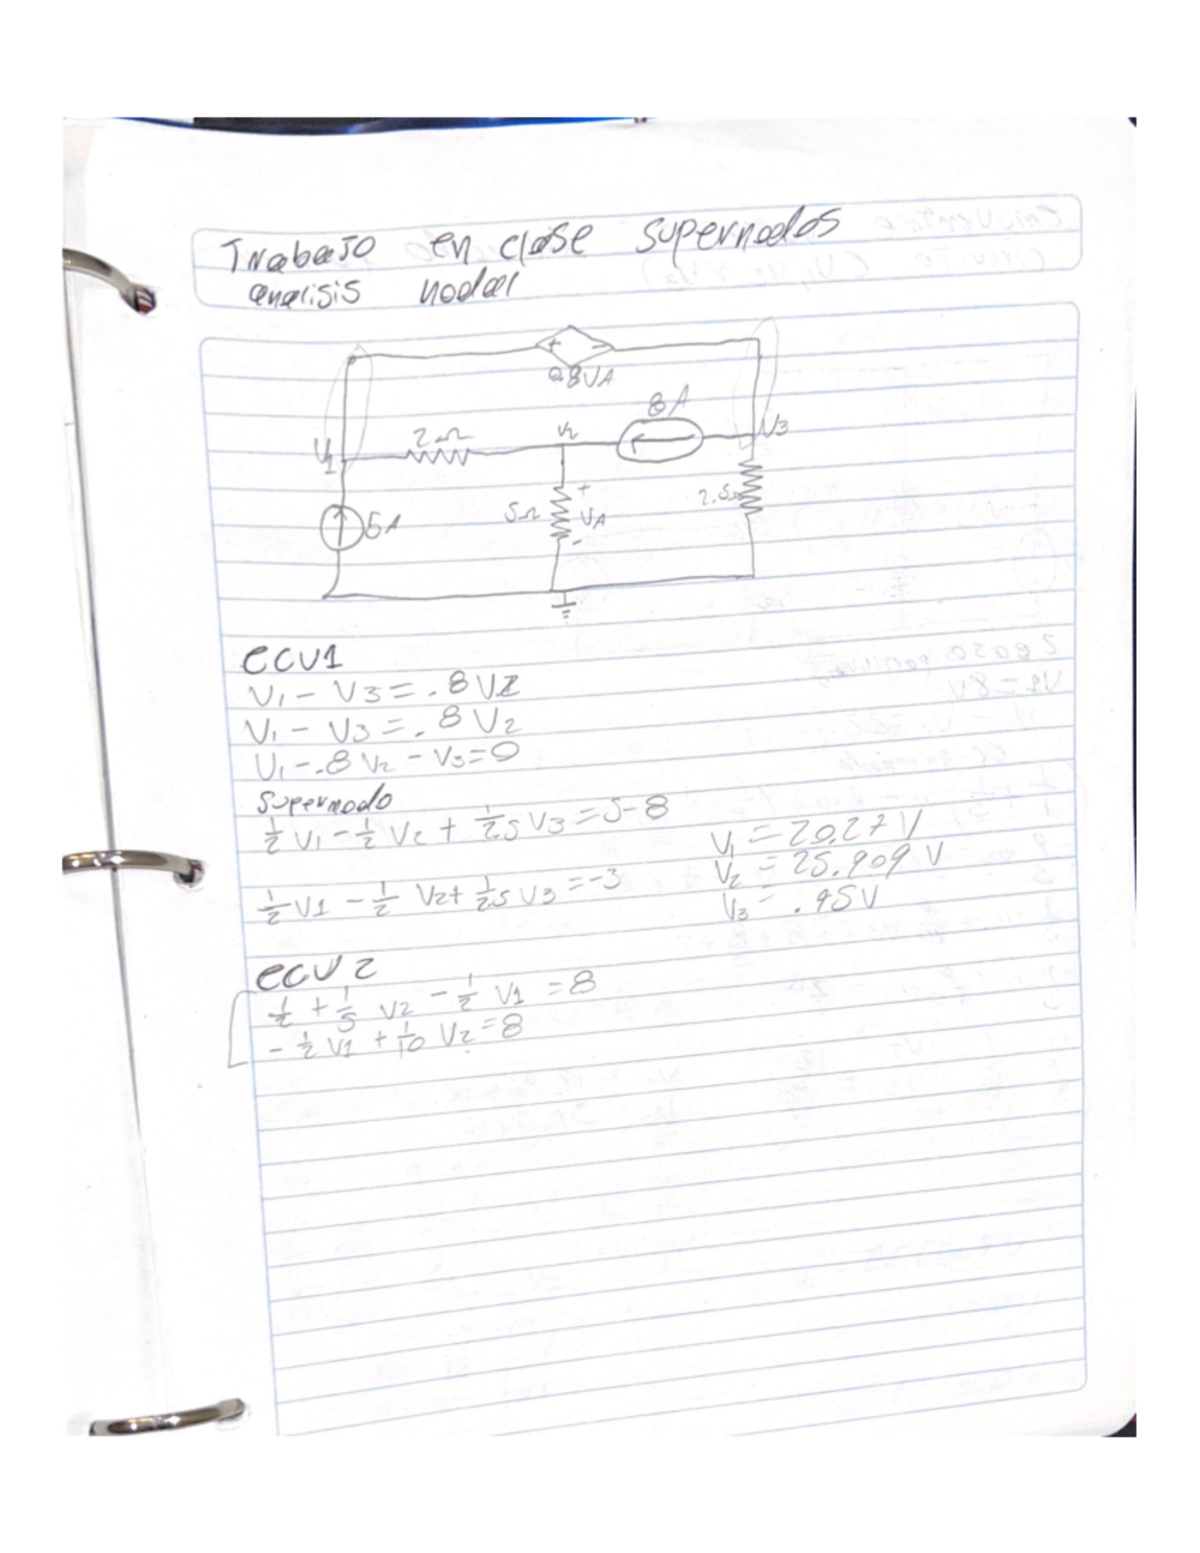 Trabajo en clase supernodos
analisis nodal
+ -
0.8VA
8A
V1 2Ω V2 V3
5A
5Ω + VA -
2.5Ω
ecu1
V1 - V3 = .8V2
V1 - V3 = .8V2
V1 - .8V2 - V3 = 0
supernodo
1/2 V1 - 1/2 V2 + 1/2.5 V3 = 5-8
1/2 V1 - 1/2 V2 + 1/2.5 V3 = -3
V1 = 20.27V
V2 = 25.909 V
V3 = .45V
ecu 2
1/2 + 1/5 V2 - 1/2 V1 = 8
- 1/2 V1 + 1/10 V2 = 8